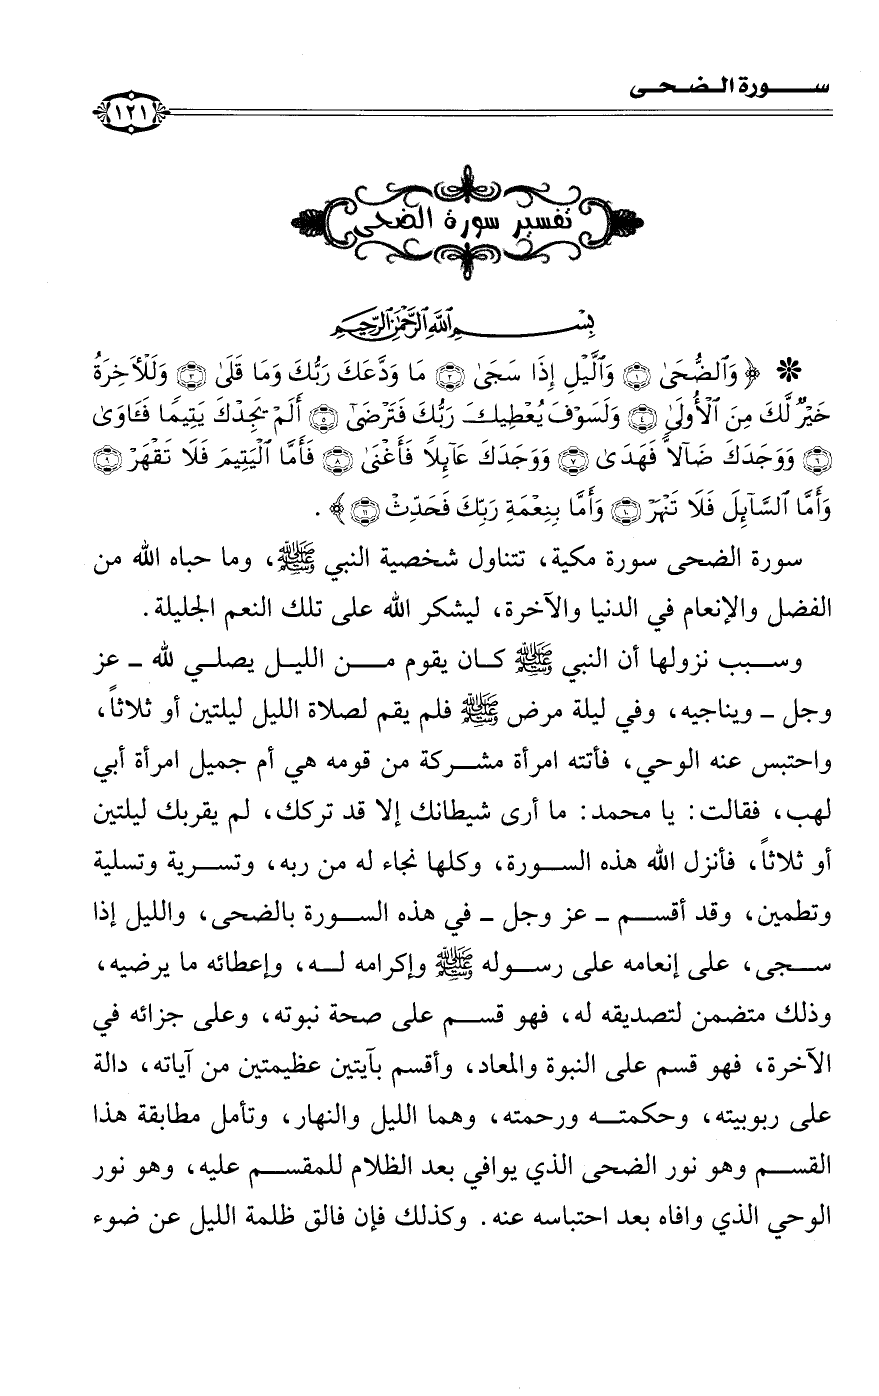 سورة الضحى
١٢١
تفسير سورة الضحى
بِسْمِ اللَّهِ الرَّحْمَٰنِ الرَّحِيمِ
❋ ﴿ وَٱلضُّحَىٰ ۝١ وَٱلَّيْلِ إِذَا سَجَىٰ ۝٢ مَا وَدَّعَكَ رَبُّكَ وَمَا قَلَىٰ ۝٣ وَلَلْأَخِرَةُ
خَيْرٌ لَّكَ مِنَ ٱلْأُولَىٰ ۝٤ وَلَسَوْفَ يُعْطِيكَ رَبُّكَ فَتَرْضَىٰٓ ۝٥ أَلَمْ يَجِدْكَ يَتِيمًا فَـَٔاوَىٰ
۝٦ وَوَجَدَكَ ضَآلًّا فَهَدَىٰ ۝٧ وَوَجَدَكَ عَآئِلًا فَأَغْنَىٰ ۝٨ فَأَمَّا ٱلْيَتِيمَ فَلَا تَقْهَرْ ۝٩
وَأَمَّا ٱلسَّآئِلَ فَلَا تَنْهَرْ ۝١٠ وَأَمَّا بِنِعْمَةِ رَبِّكَ فَحَدِّثْ ۝١١ ﴾ .
سورة الضحى سورة مكية، تتناول شخصية النبي ﷺ، وما حباه الله من
الفضل والإنعام في الدنيا والآخرة، ليشكر الله على تلك النعم الجليلة.
وسبب نزولها أن النبي ﷺ كان يقوم من الليل يصلي لله ـ عز
وجل ـ ويناجيه، وفي ليلة مرض ﷺ فلم يقم لصلاة الليل ليلتين أو ثلاثاً،
واحتبس عنه الوحي، فأتته امرأة مشركة من قومه هي أم جميل امرأة أبي
لهب، فقالت: يا محمد: ما أرى شيطانك إلا قد تركك، لم يقربك ليلتين
أو ثلاثاً، فأنزل الله هذه السورة، وكلها نجاء له من ربه، وتسرية وتسلية
وتطمين، وقد أقسم ـ عز وجل ـ في هذه السورة بالضحى، والليل إذا
سجى، على إنعامه على رسوله ﷺ وإكرامه له، وإعطائه ما يرضيه،
وذلك متضمن لتصديقه له، فهو قسم على صحة نبوته، وعلى جزائه في
الآخرة، فهو قسم على النبوة والمعاد، وأقسم بآيتين عظيمتين من آياته، دالة
على ربوبيته، وحكمته ورحمته، وهما الليل والنهار، وتأمل مطابقة هذا
القسم وهو نور الضحى الذي يوافي بعد الظلام للمقسم عليه، وهو نور
الوحي الذي وافاه بعد احتباسه عنه. وكذلك فإن فالق ظلمة الليل عن ضوء